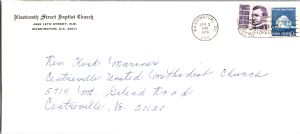 Nineteenth Street Baptist Church
4606 16TH STREET, N.W.
WASHINGTON, D.C. 20011
WASHINGTON,
Rev. Kirk Mariner
Centreville United Methodist Church
5714 Mt Gilead Road
Centreville, Va. 22020